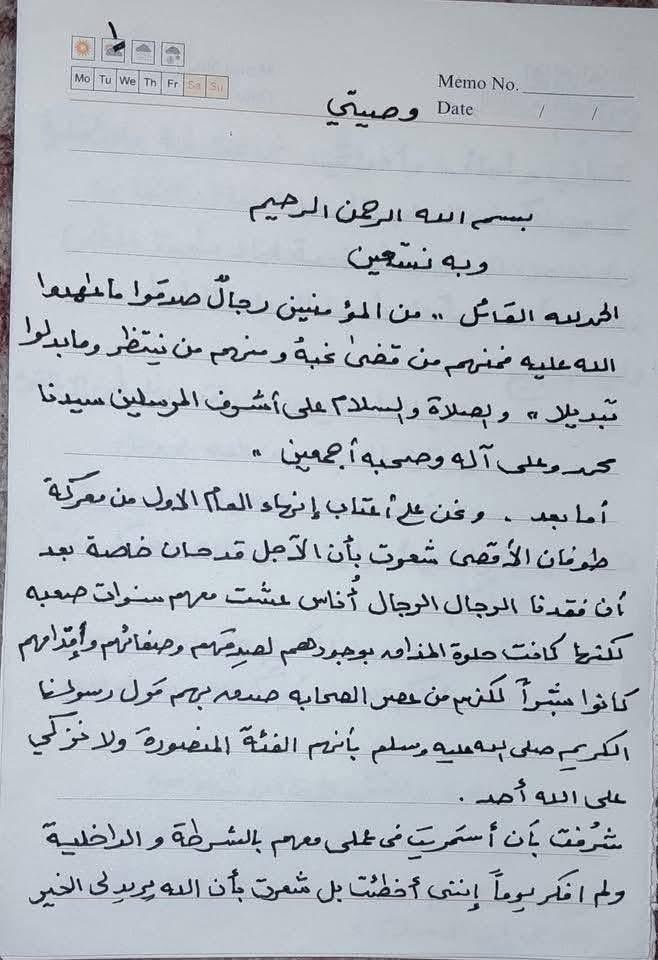 ١
Mo Tu We Th Fr Sa Su
Memo No.
Date / /
وصيتي
بسم الله الرحمن الرحيم
وبه نستعين
الحمدلله القائل ,, من المؤمنين رجالٌ صدقوا ما عاهدوا
الله عليه فمنهم من قضىٰ نحبهُ ومنهم من ينتظر وما بدلوا
تبديلا ،، والصلاة والسلام على أشرف المرسلين سيدنا
محمد وعلى آله وصحبه أجمعين ،،
أما بعد . ونحن على أعتاب إنهاء العام الاول من معركة
طوفان الأقصى شعرت بأن الأجل قد حان خاصة بعد
أن فقدنا الرجال الرجال أُناس عشت معهم سنوات صعبه
لكنها كانت حلوة المذاق بوجودهم لصدقهم وصفائهم وإقدامهم
كانوا بشراً لكنهم من عصر الصحابه صدق بهم قول رسولنا
الكريم صلى الله عليه وسلم بأنهم الفئة المنصورة ولا نزكي
على الله أحد .
شرُفت بأن أستمريت في عملي معهم بالشرطة والداخلية
ولم افكر يوماً إنني أخطئت بل شعرت بأن الله يريد لي الخير